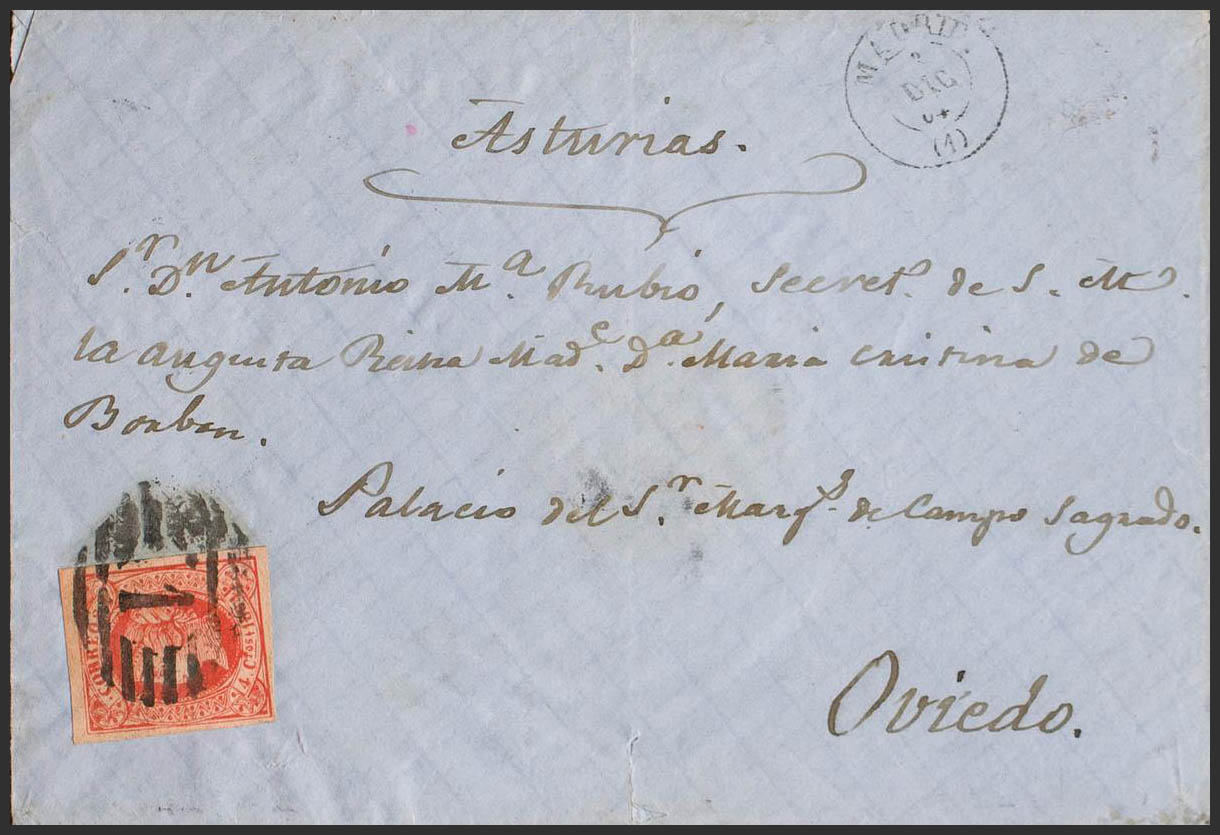 MADRID
2
DIC
64
(1)
Asturias.
Sʳ. Dⁿ. Antonio Mª. Rubio, Secretº. de S. M.
la augusta Reina Madᵉ. Dª. Maria Cristina de
Borbon.
Palacio del Sʳ. Marqˢ. de Campo Sagrado.
Oviedo.
CORREOS
1
4 Cuos